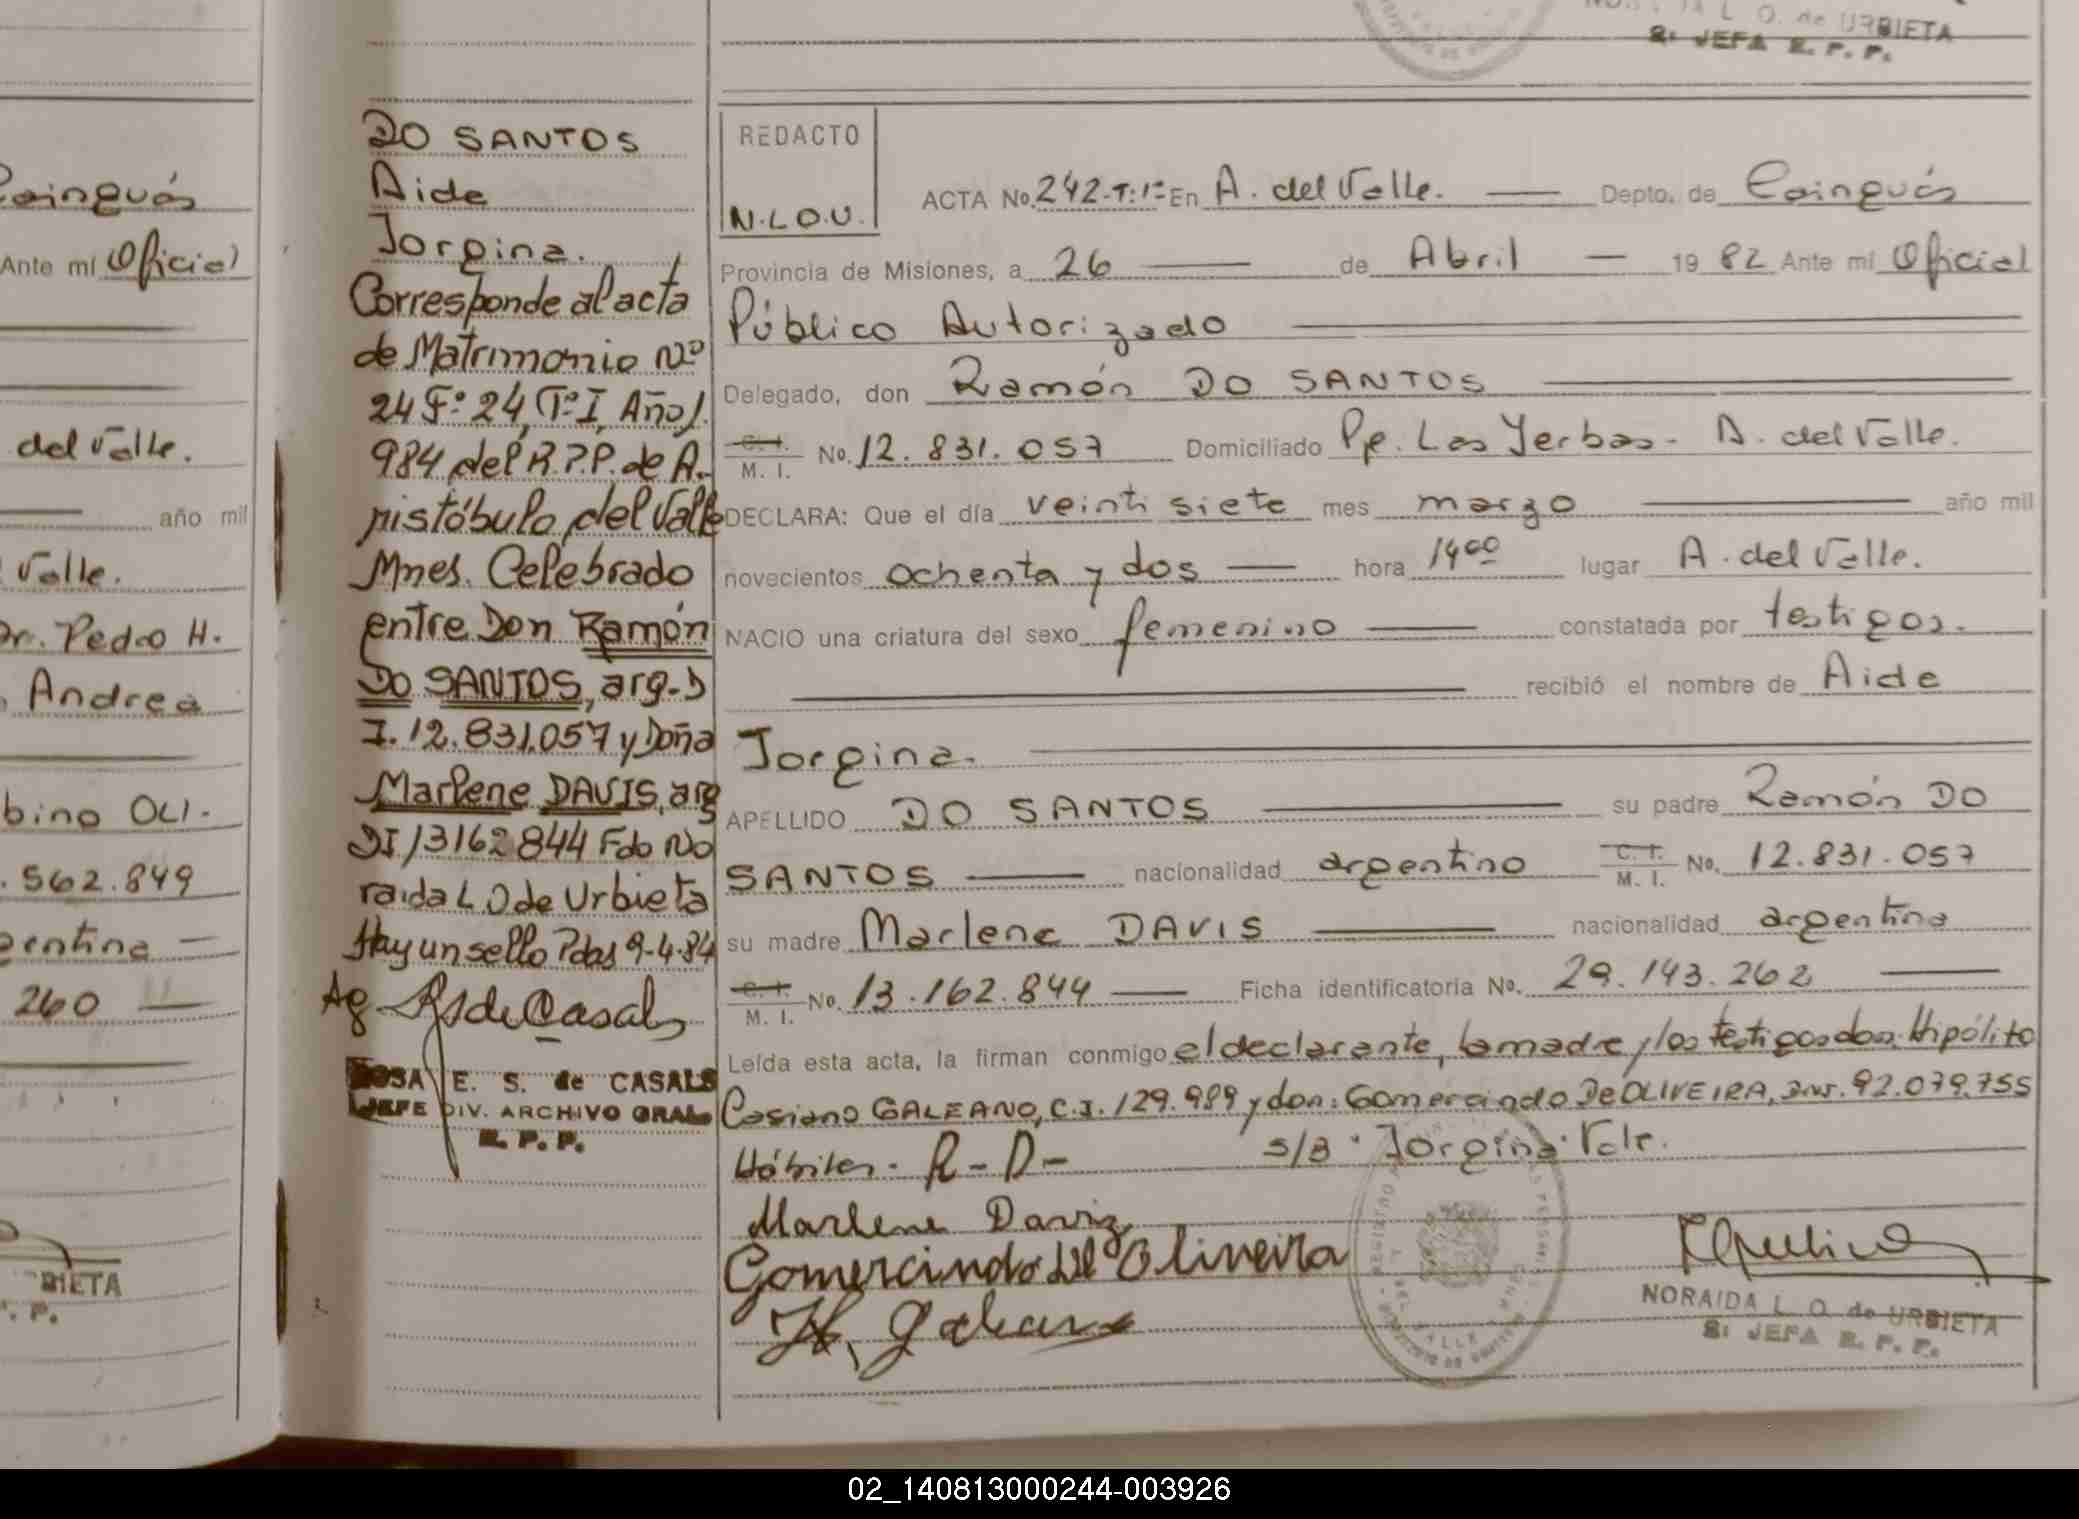 NORAIDA L. O. de URBIETA
2: JEFA R. P. P.
Caingúas
Ante mí Oficial
del Valle.
año mil
Valle.
Dr. Pedro H.
Andrea
bino OLI-
.562.849
gentina
260
BIETA
. P.
DO SANTOS
Aide
Jorgina.
Corresponde al acta
de Matrimonio Nº
24 Fº 24, Tº I, Año 1.
984 del R.P.P. de A.
ristóbulo del Valle
Mnes. Celebrado
entre Don Ramón
Do SANTOS, arg. D
I. 12.831.057 y Doña
Marlene DAVIS, arg
DI 13162844 Fdo No
raida L.O de Urbieta
Hay un sello Pdas 9-4-84
RS de Casals
ROSA E. S. de CASALS
JEFE DIV. ARCHIVO GRAL
R. P. P.
REDACTO
N.L.O.U.
ACTA No. 242-T:1º En A. del Valle. Depto. de Caingúas
Provincia de Misiones, a 26 de Abril 19 82 Ante mí Oficial
Público Autorizado
Delegado, don Ramón DO SANTOS
C. I. M. I. No. 12.831.057 Domiciliado Pje. Las Yerbas - A. del Valle.
DECLARA: Que el día veinti siete mes marzo año mil
novecientos ochenta y dos hora 14⁰⁰ lugar A. del Valle.
NACIO una criatura del sexo femenino constatada por testigos.
recibió el nombre de Aide
Jorgina.
APELLIDO DO SANTOS su padre Ramón DO
SANTOS nacionalidad argentino C. I. M. I. No. 12.831.057
su madre Marlene DAVIS nacionalidad argentina
C. I. M. I. No. 13.162.844 Ficha identificatoria No. 29.143.262
Leída esta acta, la firman conmigo el declarante, la madre y los testigos don: Hipólito
Casiano GALEANO, C.I. 129.989 y don: Gomercindo De OLIVEIRA, 92.079.755
Hábiles - R - D - s/B · Jorgina · Vale.
Marlene Daviz
Gomercindo de Oliveira
H, Galeano
NORAIDA L. O. de URBIETA
2: JEFA R. P. P.
02_140813000244-003926